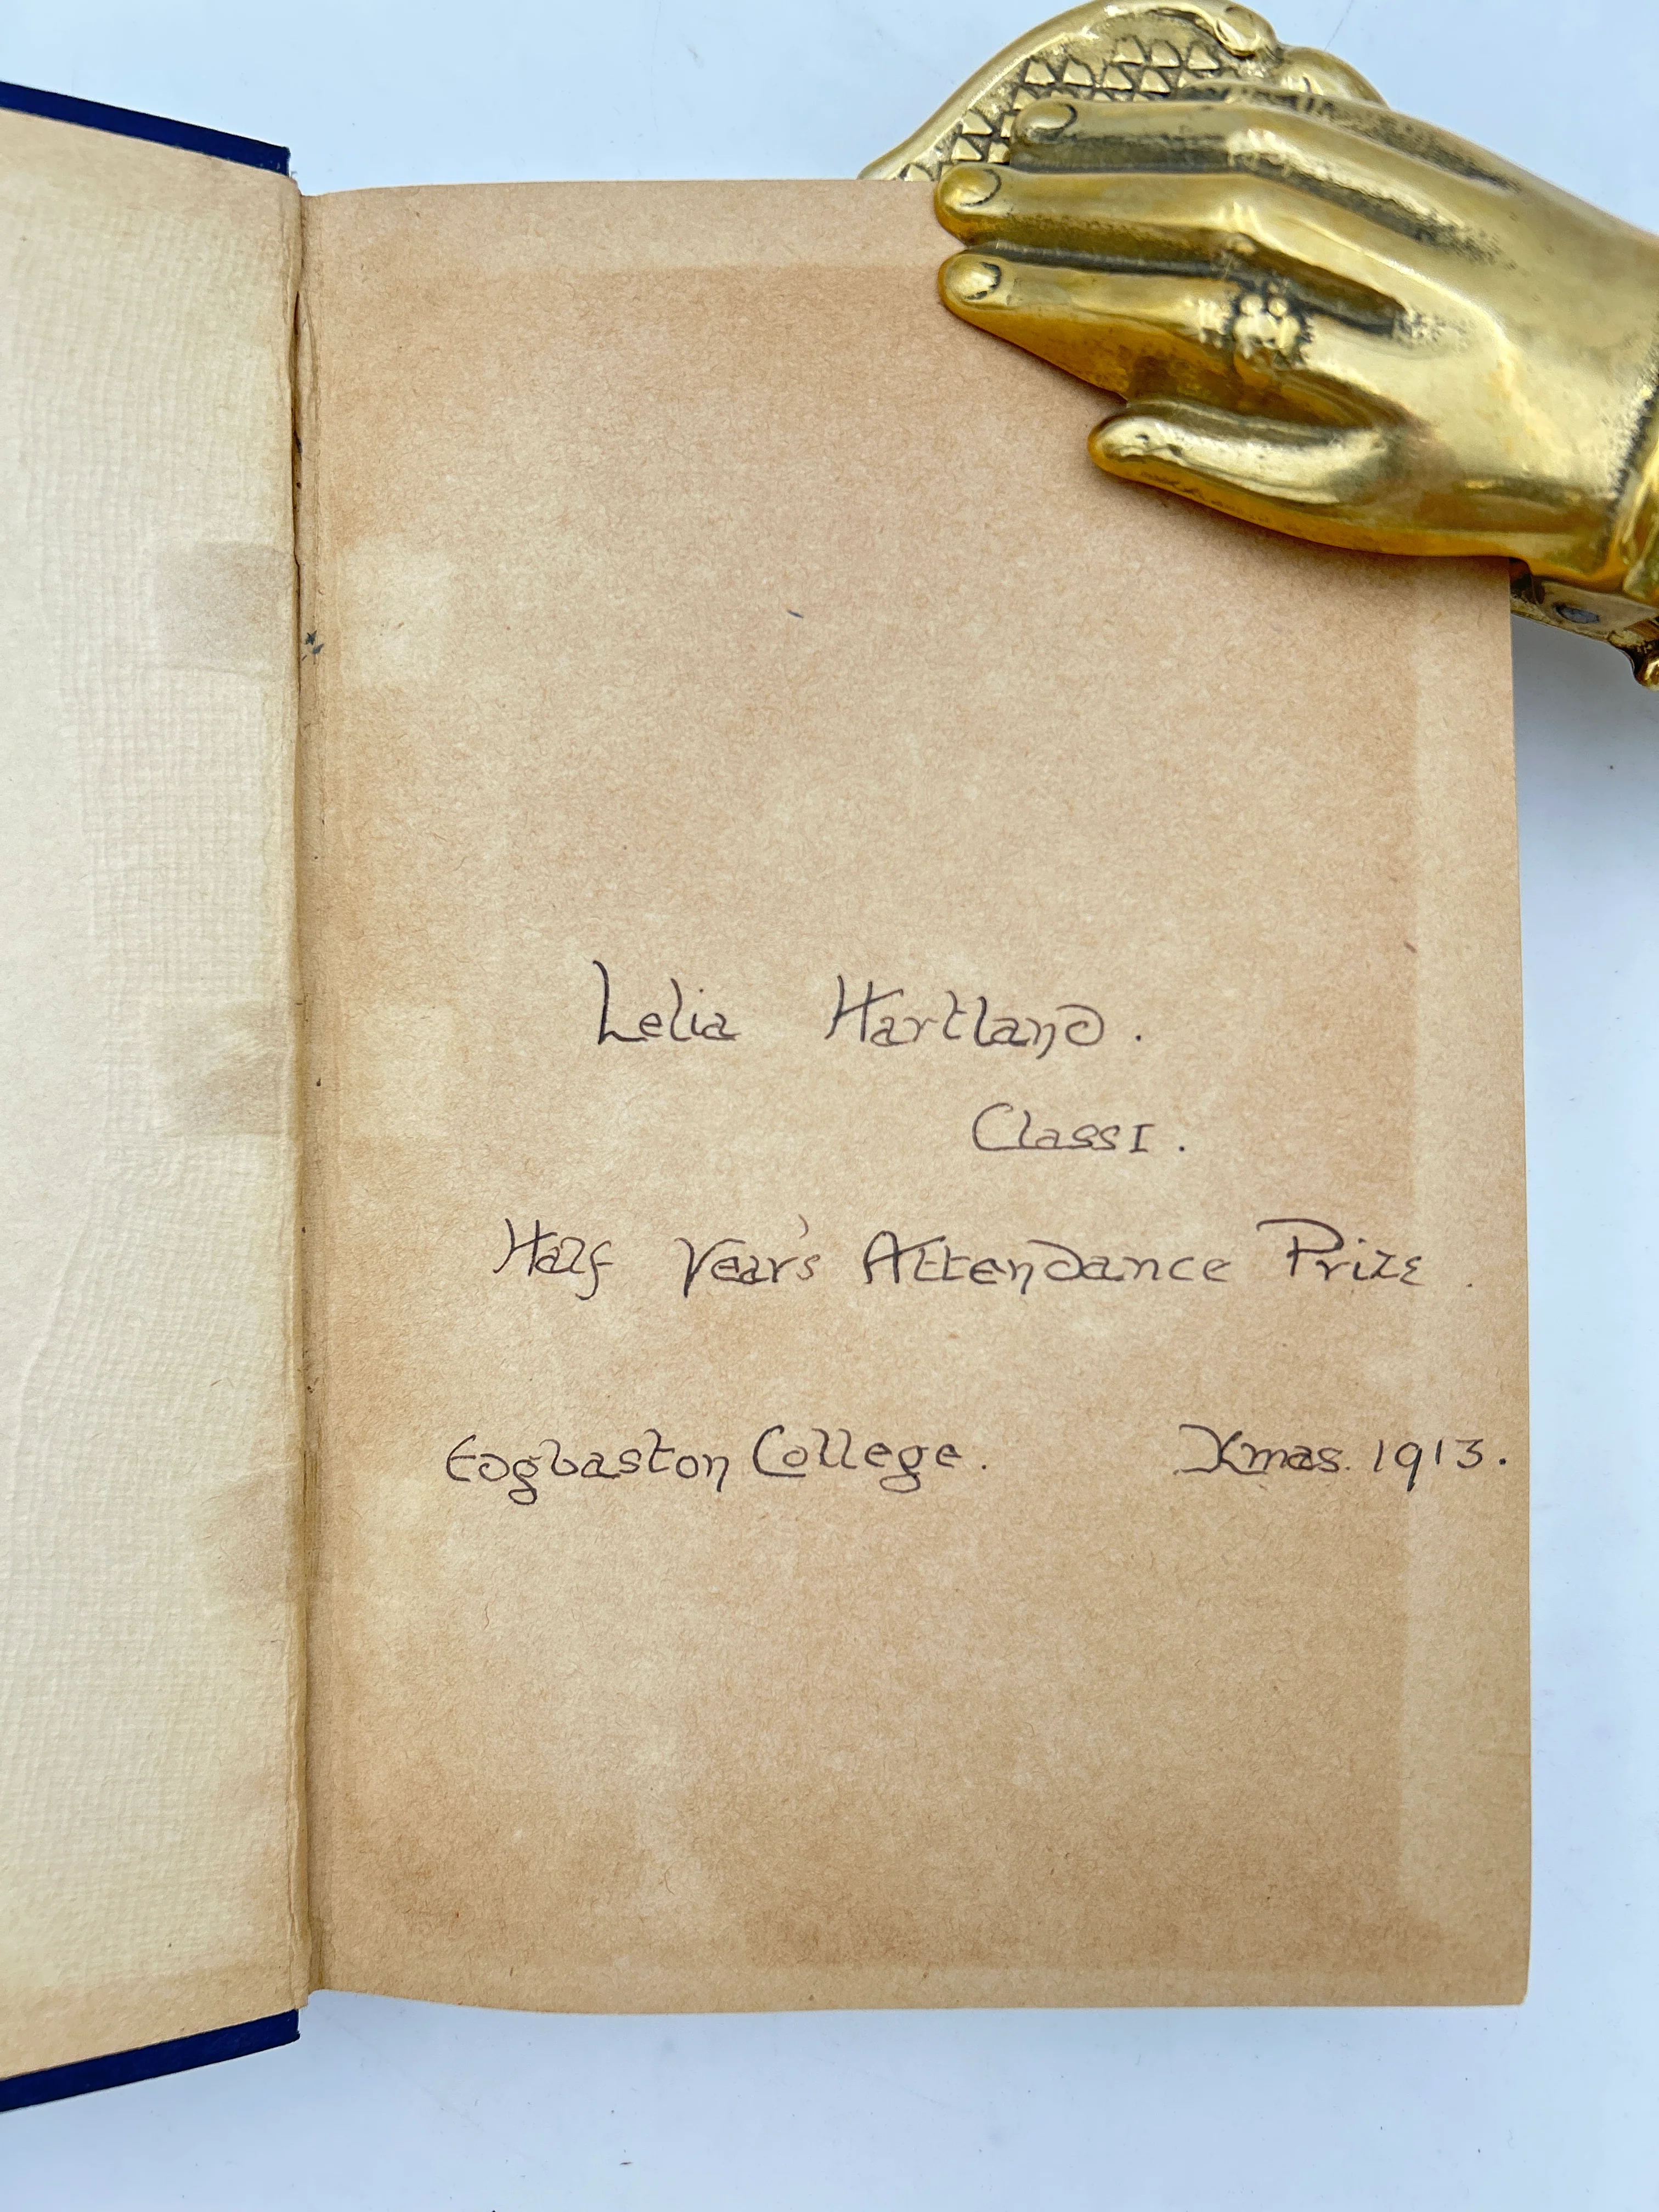 Lelia Hartland.
Class I.
Half Year's Attendance Prize.
Edgbaston College. Xmas. 1913.